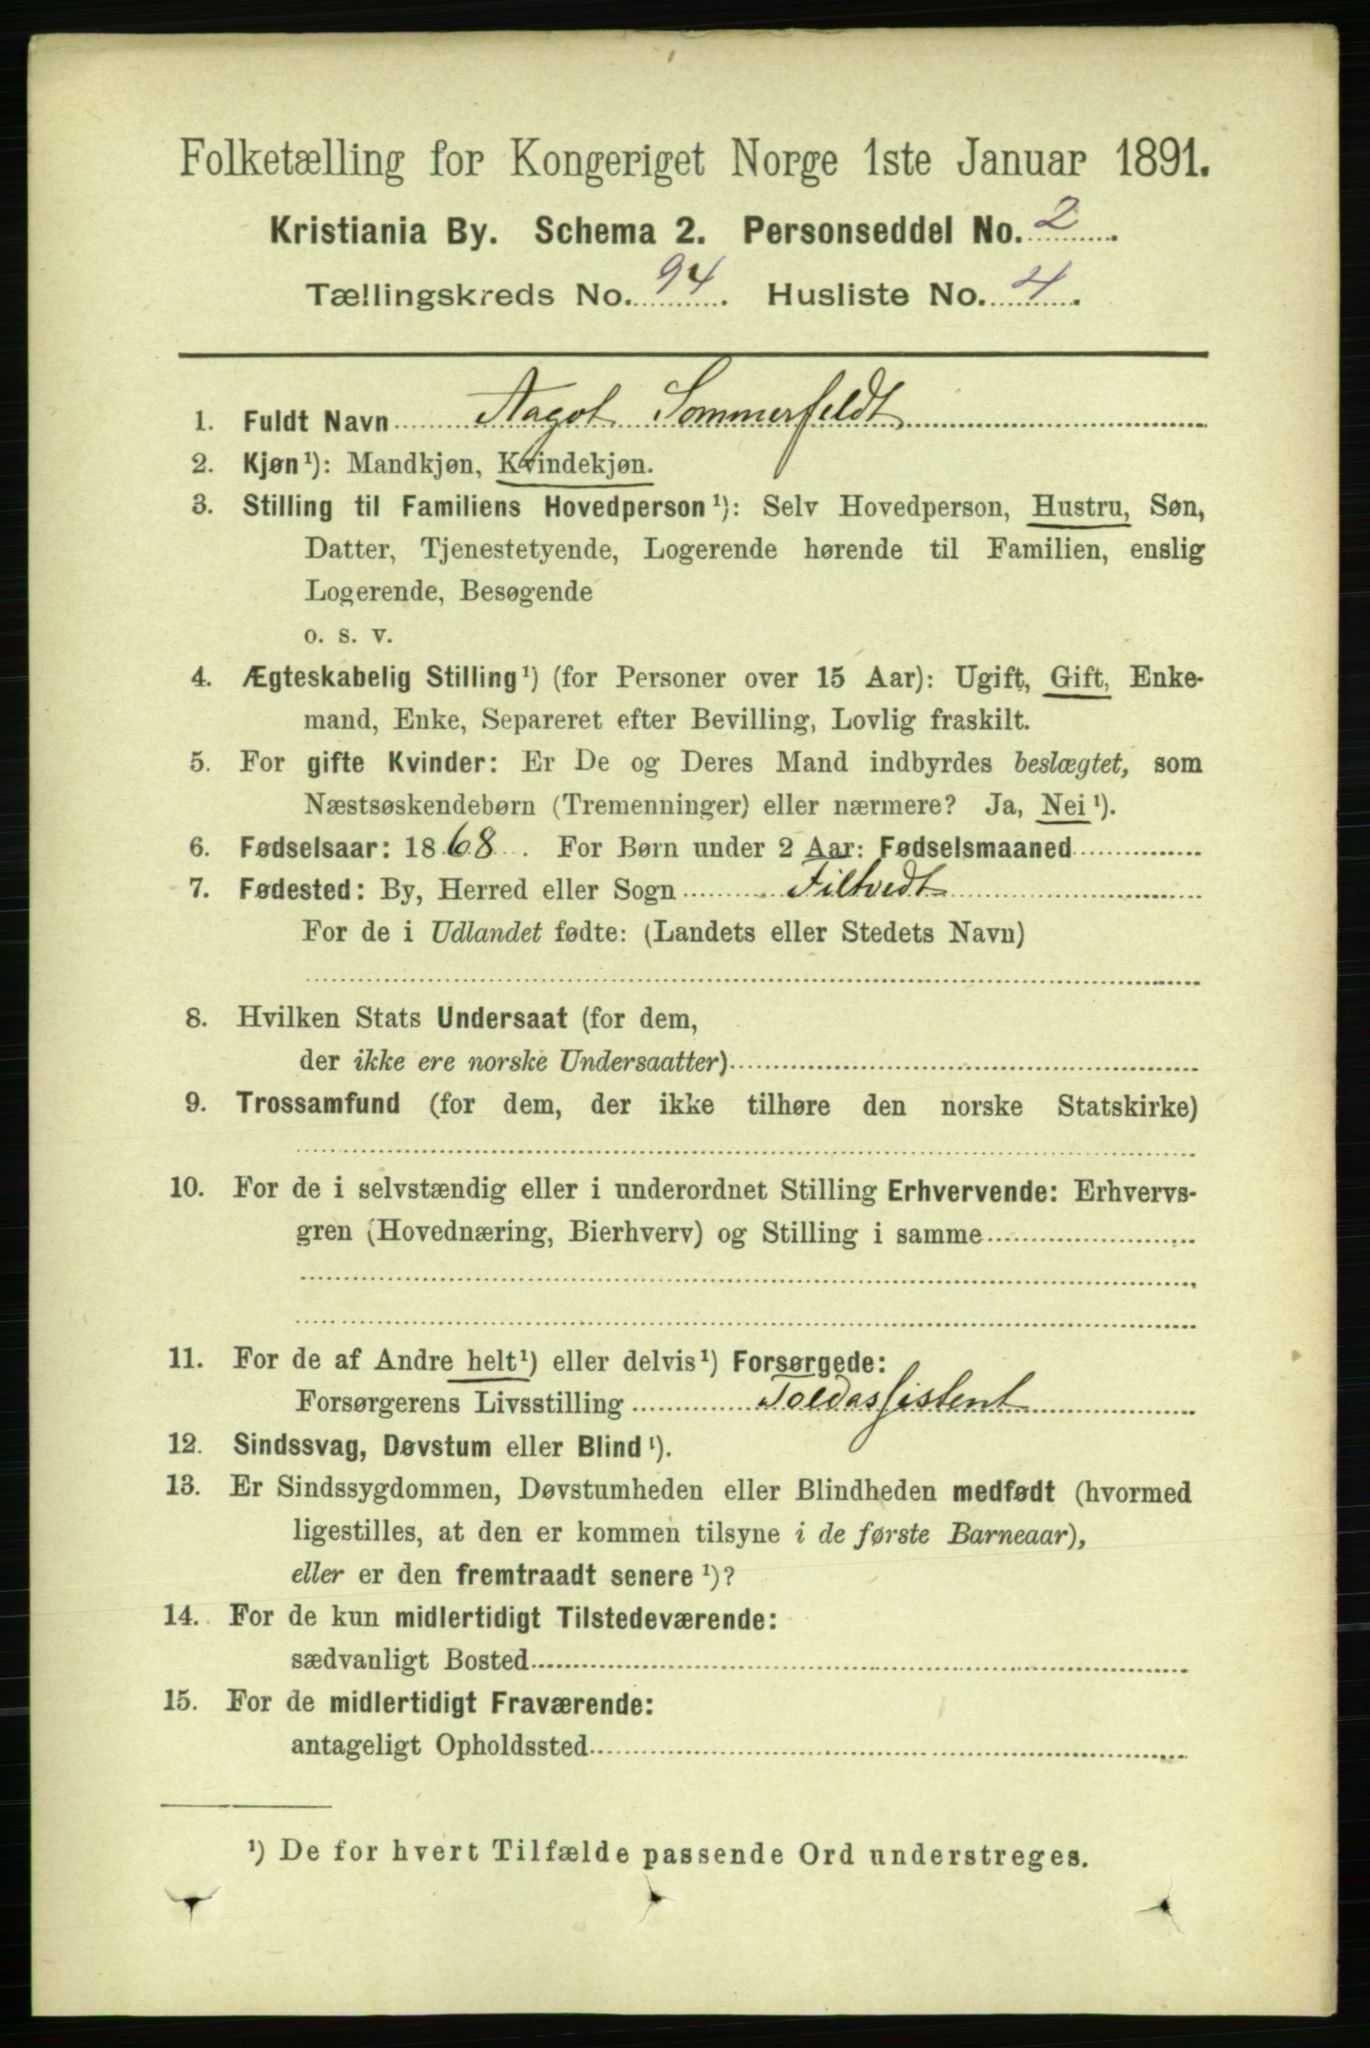 Folketælling for Kongeriget Norge 1ste Januar 1891.
Kristiania By. Schema 2. Personseddel No. 2.
Tællingskreds No. 94. Husliste No. 4.
1. Fuldt Navn Aagot Sommerfeldt
2. Kjøn¹): Mandkjøn, Kvindekjøn.
3. Stilling til Familiens Hovedperson¹): Selv Hovedperson, Hustru, Søn,
Datter, Tjenestetyende, Logerende hørende til Familien, enslig
Logerende, Besøgende
o. s. v.
4. Ægteskabelig Stilling¹) (for Personer over 15 Aar): Ugift, Gift, Enke-
mand, Enke, Separeret efter Bevilling, Lovlig fraskilt.
5. For gifte Kvinder: Er De og Deres Mand indbyrdes beslægtet, som
Næstsøskendebørn (Tremenninger) eller nærmere? Ja, Nei¹).
6. Fødselsaar: 1868. For Børn under 2 Aar: Fødselsmaaned
7. Fødested: By, Herred eller Sogn Filtvedt
For de i Udlandet fødte: (Landets eller Stedets Navn)
8. Hvilken Stats Undersaat (for dem,
der ikke ere norske Undersaatter)
9. Trossamfund (for dem, der ikke tilhøre den norske Statskirke)
10. For de i selvstændig eller i underordnet Stilling Erhvervende: Erhvervs-
gren (Hovednæring, Bierhverv) og Stilling i samme
11. For de af Andre helt¹) eller delvis¹) Forsørgede:
Forsørgerens Livsstilling Toldassistent
12. Sindssvag, Døvstum eller Blind¹).
13. Er Sindssygdommen, Døvstumheden eller Blindheden medfødt (hvormed
ligestilles, at den er kommen tilsyne i de første Barneaar),
eller er den fremtraadt senere¹)?
14. For de kun midlertidigt Tilstedeværende:
sædvanligt Bosted
15. For de midlertidigt Fraværende:
antageligt Opholdssted
¹) De for hvert Tilfælde passende Ord understreges.